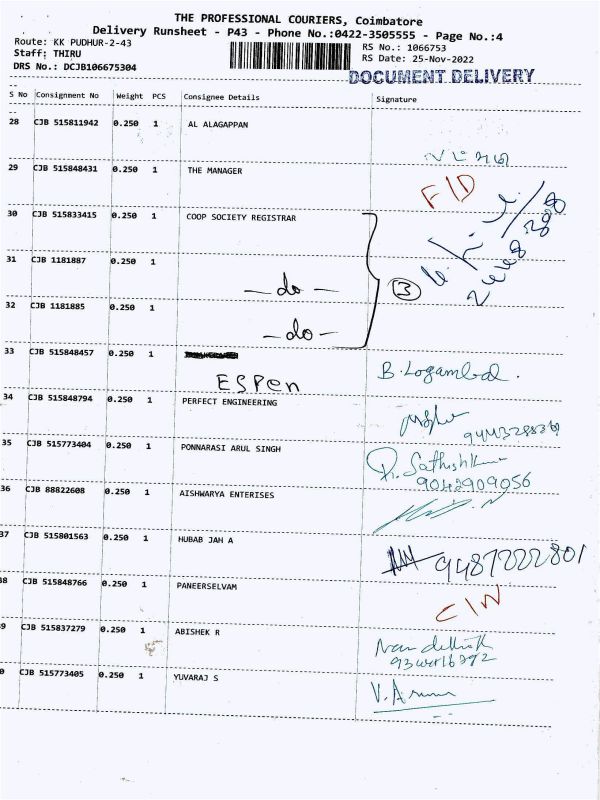 THE PROFESSIONAL COURIERS, Coimbatore
Delivery Runsheet - P43 - Phone No.:0422-3505555 - Page No.:4
Route: KK PUDHUR-2-43
RS No.: 1066753
Staff: THIRU
RS Date: 25-Nov-2022
DRS No.: DCJB106675304
DOCUMENT DELIVERY
S No Consignment No Weight PCS Consignee Details Signature
28 CJB 515811942 0.250 1 AL ALAGAPPAN
29 CJB 515848431 0.250 1 THE MANAGER F/D
30 CJB 515833415 0.250 1 COOP SOCIETY REGISTRAR
31 CJB 1181887 0.250 1
-do- 3
32 CJB 1181885 0.250 1
-do-
33 CJB 515848457 0.250 1 B. Logambal.
ESPEn
34 CJB 515848794 0.250 1 PERFECT ENGINEERING
35 CJB 515773404 0.250 1 PONNARASI ARUL SINGH
9042909056
36 CJB 88822608 0.250 1 AISHWARYA ENTERISES
37 CJB 515801563 0.250 1 HUBAB JAH A 9487222801
38 CJB 515848766 0.250 1 PANEERSELVAM
39 CJB 515837279 0.250 1 ABISHEK R
0 CJB 515773405 0.250 1 YUVARAJ S